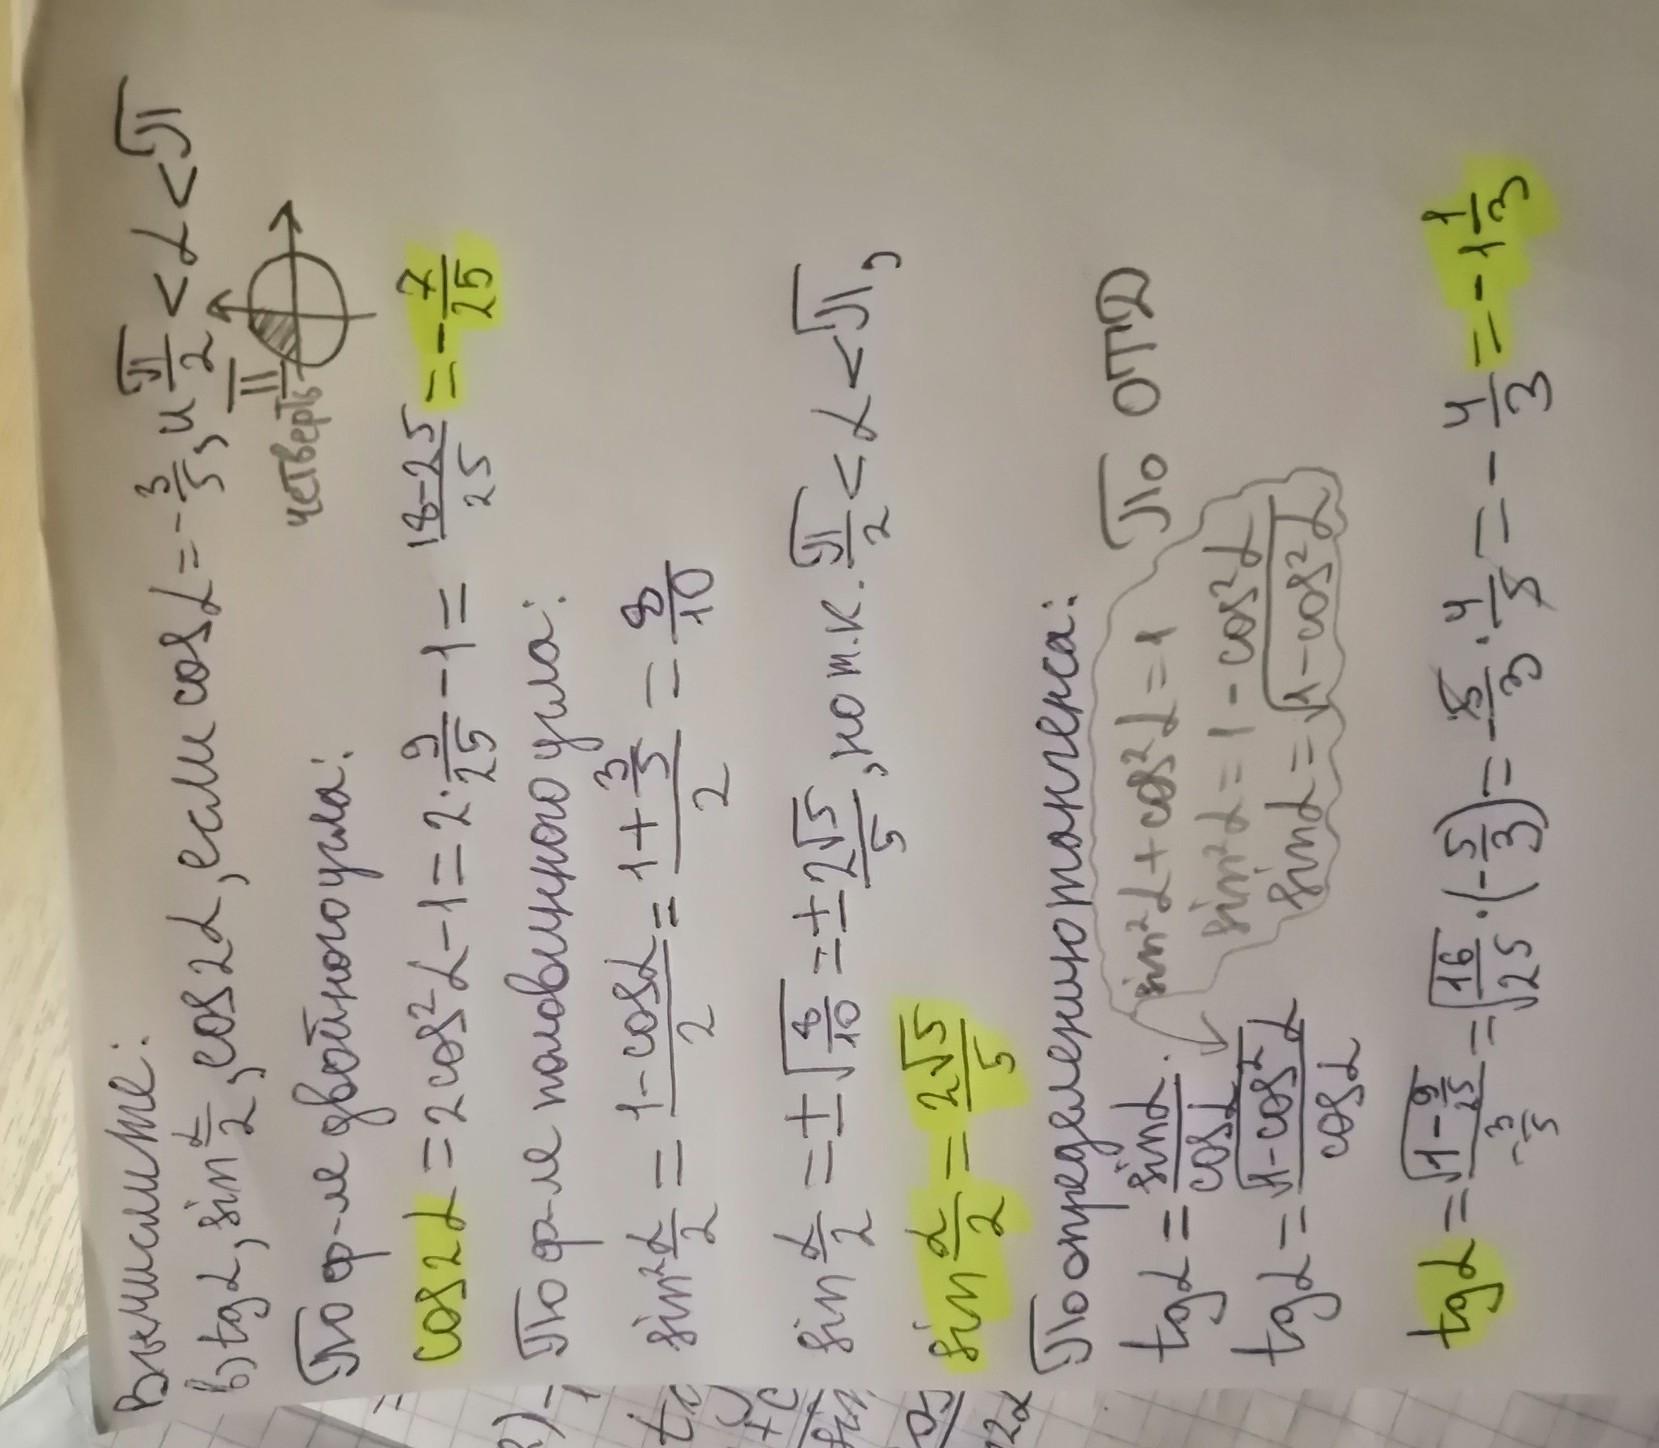 Вычислите:
в) tg α, sin α/2, cos 2α, если cos α = -3/5, и π/2 < α < π
II
четверть
По ф-ле двойного угла:
cos 2α = 2cos²α - 1 = 2·9/25 - 1 = 18-25/25 = -7/25
По ф-ле половинного угла:
sin²α/2 = 1-cosα/2 = 1+3/5/2 = 8/10
sin α/2 = ±√8/10 = ±2√5/5, но т.к. π/2 < α < π,
sin α/2 = 2√5/5
По определению тангенса:
По ОТТ
tg α = sin α/cos α
sin²α + cos²α = 1
sin²α = 1 - cos²α
sin α = √1-cos²α
tg α = √1-cos²α/cos α
tg α = √1-9/25/-3/5 = √16/25·(-5/3) = -5/3·4/5 = -4/3 = -1 1/3